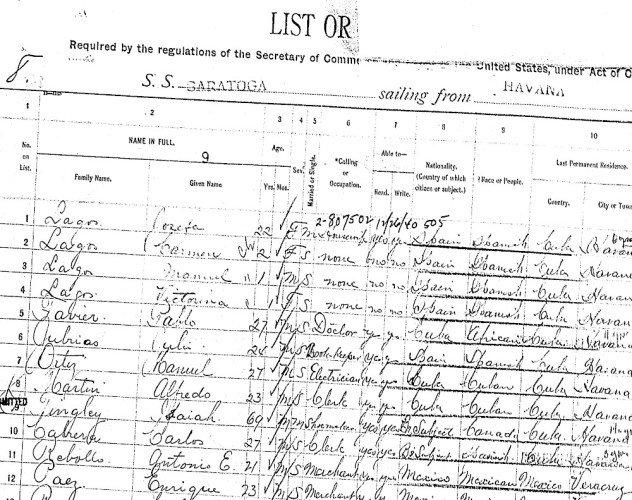 LIST OR
Required by the regulations of the Secretary of Comm United States, under Act of C
8 S. S. SARATOGA sailing from HAVANA
1 2 3 4 5 6 7 8 9 10
No. on List. NAME IN FULL. Age. Sex. Married or Single. *Calling or Occupation. Able to— Nationality. (Country of which citizen or subject.) †Race or People. Last Permanent Residence.
Family Name. Given Name Yrs. Mos. Read. Write. Country. City or Town
2-807502 12/26/40 505
1 Lagos Josefa 22 F m yes Spain Spanish Cuba Havana
2 Lagos Carmen 2 F S none no no Spain Spanish Cuba Havana
3 Lagos Manuel 1 m S none no no Spain Spanish Cuba Havana
4 Lagos Victorina 1 F S none no no Spain Spanish Cuba Havana
5 Pablo 27 m S Doctor yes yes Cuba African Cuba Havana
6 Julio 26 m S Book-keeper yes yes Spain Spanish Cuba Havana
7 Ortiz Manuel 27 m S Electrician yes yes Cuba Cuban Cuba Havana
8 Martin Alfredo 23 m S Clerk yes yes Cuba Cuban Cuba Havana
9 Tingley Isaiah 69 m m Shoemaker yes yes Br Subject Canady Cuba Havana
10 Cabrera Carlos 27 m S Clerk yes yes Br Subject
11 Rebollo Antonio E. 21 m S Merchant yes yes Mexico Mexican Mexico Veracruz
12 Paez Enrique 23 m S Merchant